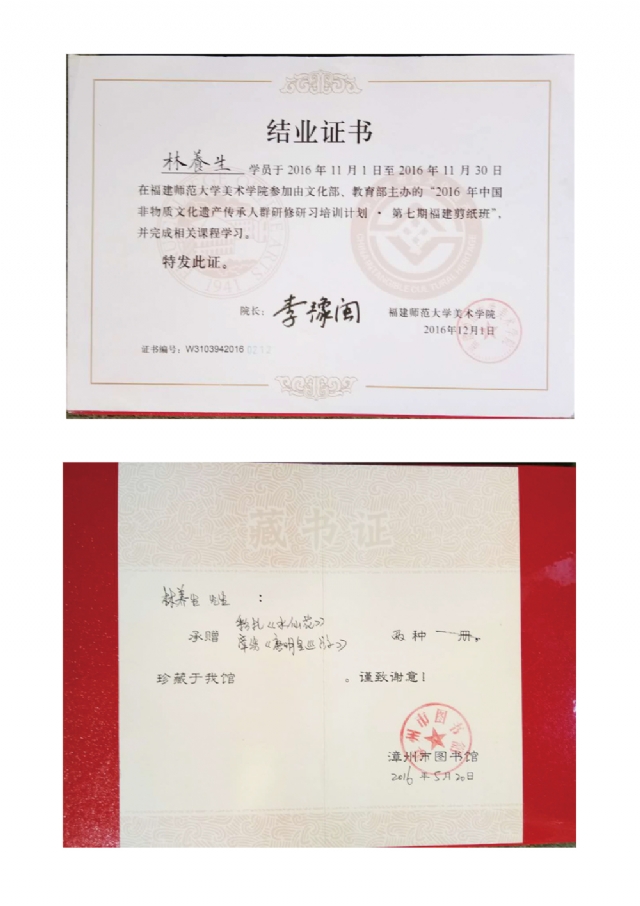 结业证书
林養生 学员于 2016 年 11 月 1 日至 2016 年 11 月 30 日
在福建师范大学美术学院参加由文化部、教育部主办的“2016 年中国
非物质文化遗产传承人群研修研习培训计划 · 第七期福建剪纸班”，
并完成相关课程学习。
特发此证。
院长：李豫闽
福建师范大学美术学院
2016年12月1日
证书编号：W3103942016
1941
藏书证
林养生 先生 ：
承赠
《水仙花》
《唐明皇 》
两种 一 册。
珍藏于我馆 。谨致谢意！
漳州市图书馆
2016 年 5 月 20 日